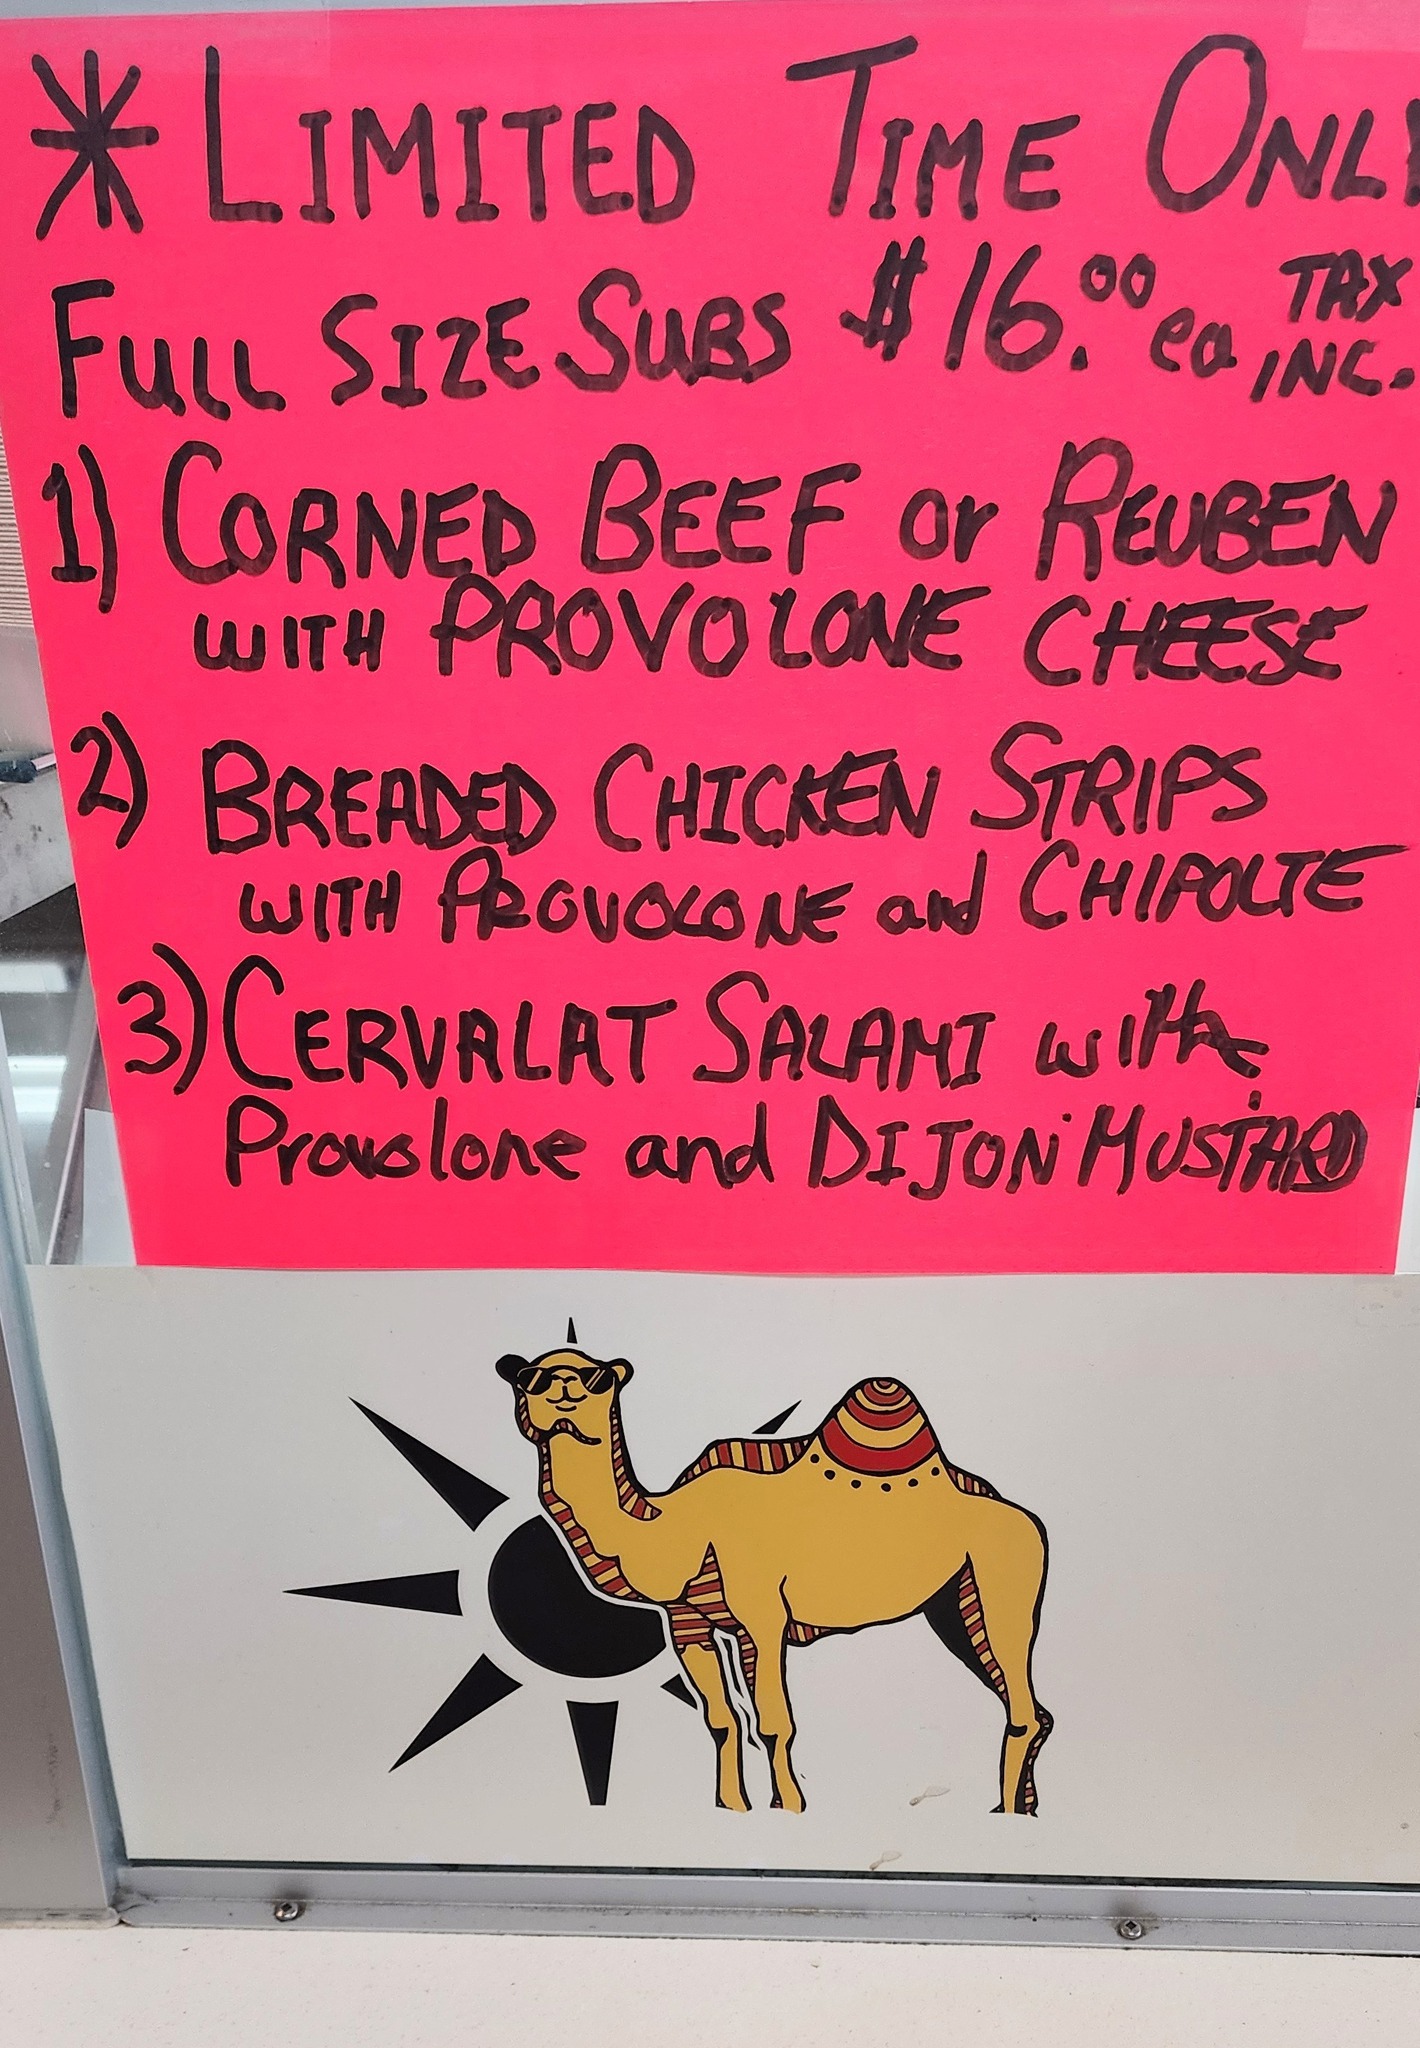 * LIMITED TIME ONL
FULL SIZE SUBS $16.00 ea TAX INC.
1) CORNED BEEF or REUBEN
WITH PROVOLONE CHEESE
2) BREADED CHICKEN STRIPS
WITH PROVOLONE and CHIPOLTE
3) CERVALAT SALAMI with
Provolone and DIJON MUSTARD